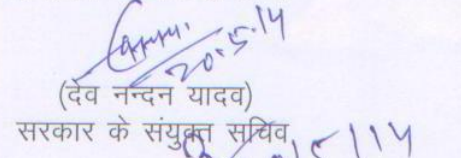 20.5.14
(देव नन्दन यादव)
सरकार के संयुक्त सचिव